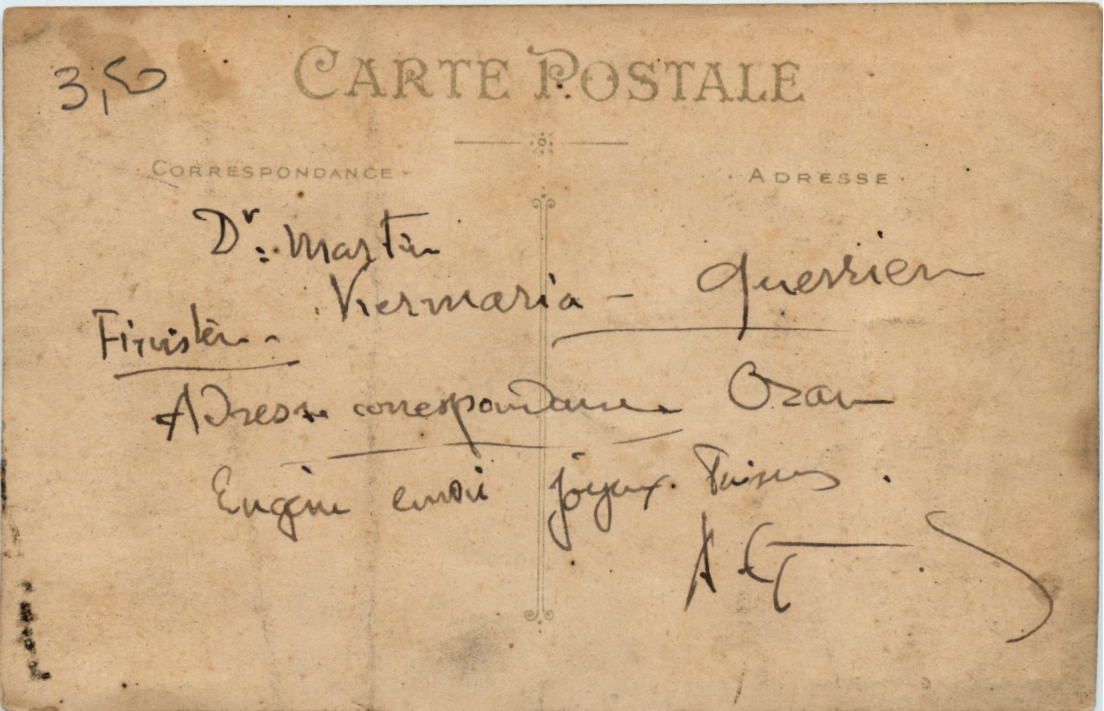 3,50
CARTE POSTALE
CORRESPONDANCE
ADRESSE
Dr. Martin
Kermaria - Querrien
Finistère
Adresse correspondance Oran
Eugène envoi joyeux